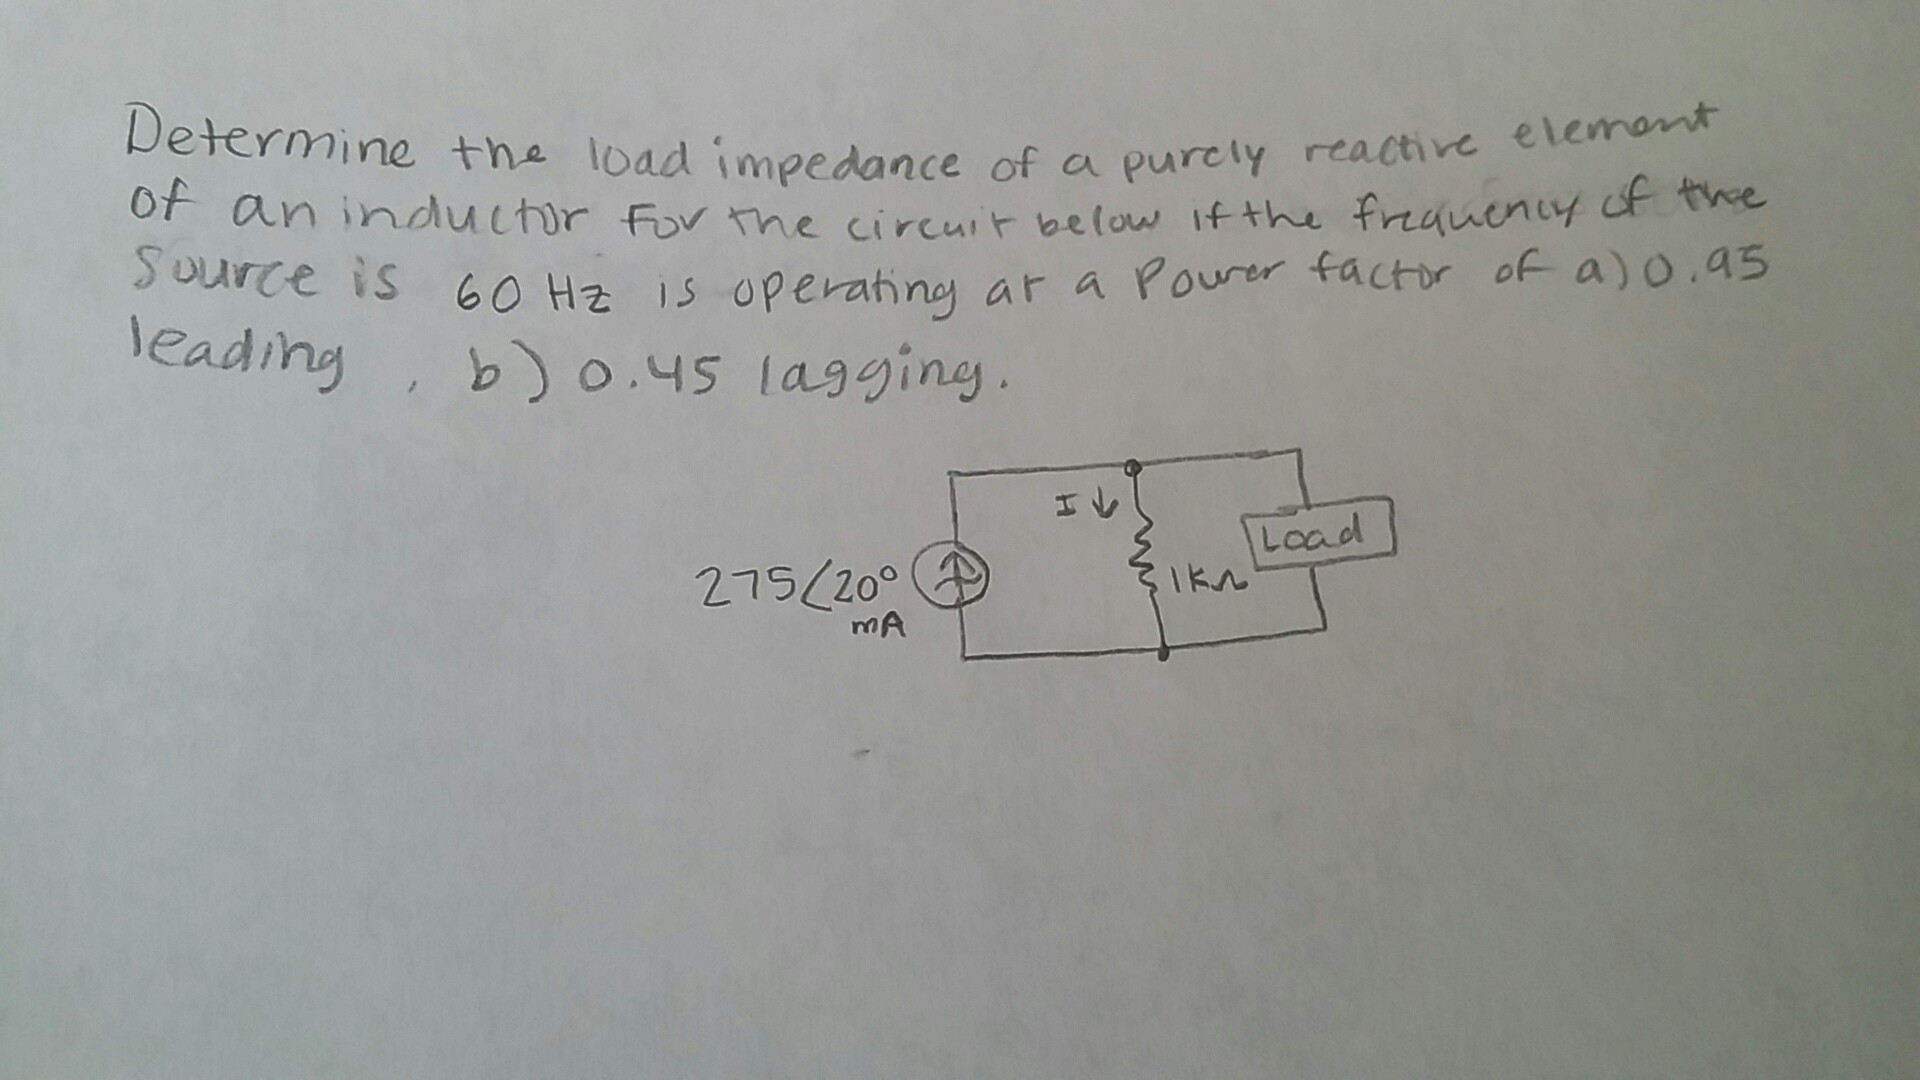 Determine the load impedance of a purely reactive element
of an inductor for the circuit below if the frequency of the
source is 60 Hz is operating at a power factor of a) 0.95
leading, b) 0.45 lagging.
I ↓
Load
275∠20°
mA
1KΩ